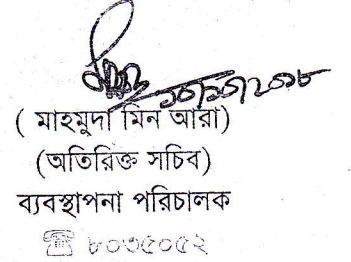 ( মাহমুদা মিন আরা)
(অতিরিক্ত সচিব)
ব্যবস্থাপনা পরিচালক
☎ ৮০৩৫০৫২